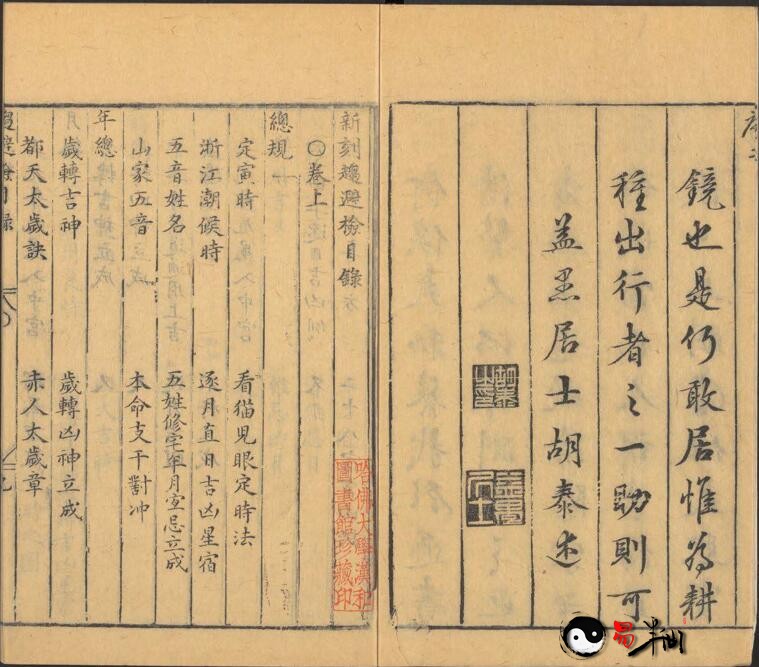 鏡也是何敢居惟為耕
種出行者之一助則可
盖愚居士胡泰述
新刻趨避檢目錄
○卷上
總規
定寅時　看猫児眼定時法
浙江潮候時　逐月直日吉凶星宿
五音姓名　五姓修宅年月宜忌立成
山家五音　本命支干對冲
年總
歲轉吉神　歲轉凶神立成
都天太歲訣　赤人太歲章
趨避檢目錄
哈佛大學漢和
圖書館珍藏印
易半仙